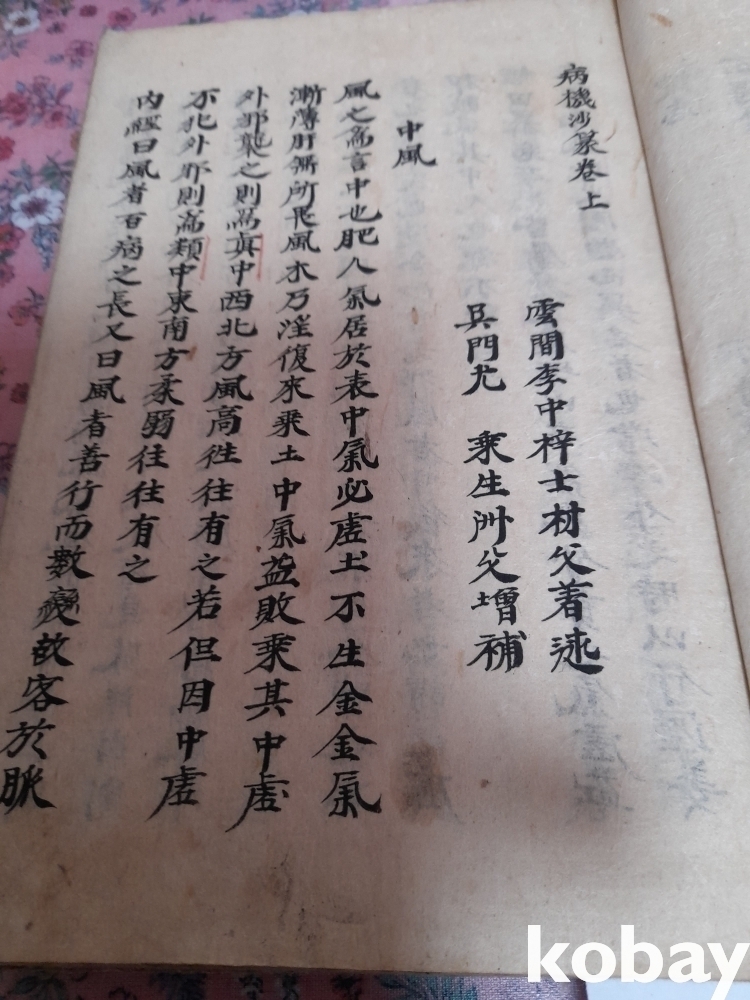 病機沙篆卷上
雲間李中梓士材父著述
吳門尤 乘生洲父增補
中風
風之爲言中也肥人氣居於表中氣必虛土不生金金氣
漸薄肝無所畏風木乃淫復來乘土中氣益敗乘其中虛
外邪襲之則爲眞中西北方風高徃往有之若但因中虛
不扎外邪則爲類中東南方柔弱往往有之
內經曰風者百病之長又曰風者善行而數變故客於脈
kobay